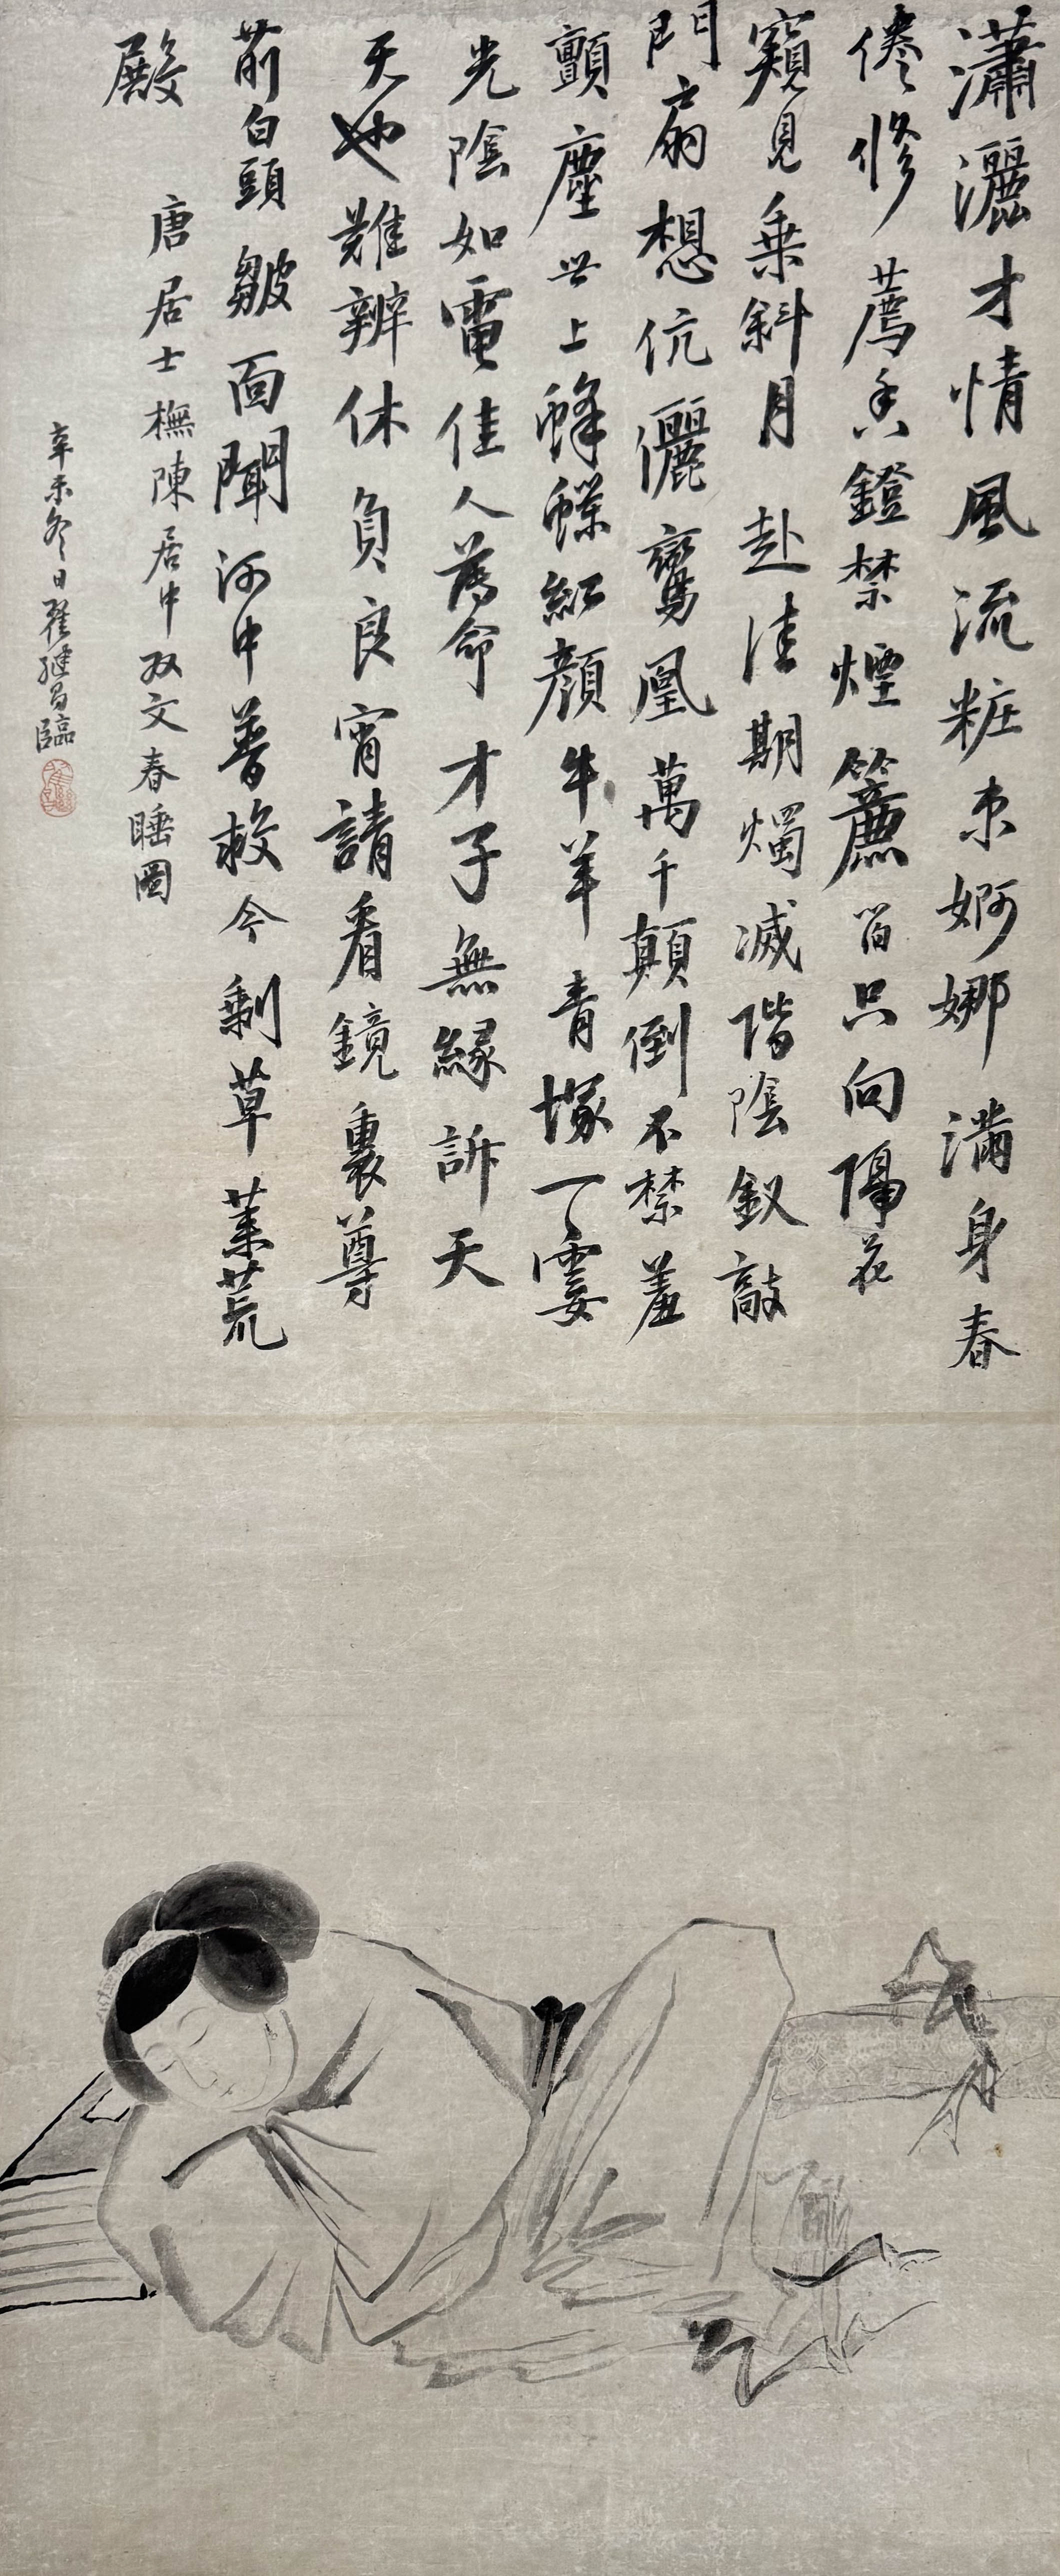 瀟灑才情風流粧束婀娜滿身春
倦修薦香鐙禁煙簾箔只向隔花
窺見乘斜月赴佳期燭滅階陰釵敲
門扇想伉儷鸞凰萬千顛倒不禁羞
顫塵世上蜂蝶紅顏牛羊青塚一霎
光陰如電佳人薄命才子無緣訴天
天也難辨休負良宵請看鏡裏尊
前白頭皺面聞河中普救今剩草萊荒
殿
唐居士橅陳居中双文春睡圖
辛未冬日 臨